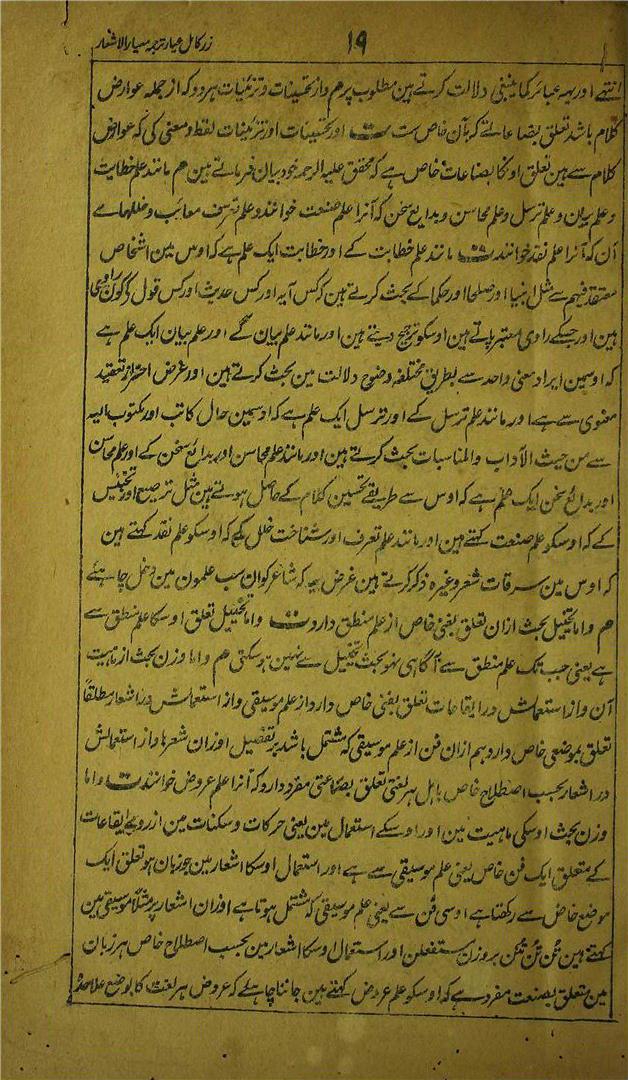 ۱۹
زر کامل عیار ترجمہ معیار الاشعار
انتہے اور یہہ عبائر کما ینبغی دلالت کرتے ہین مطلوب پر هم واز تحسینات و تزئینات ہر دو کہ از جملہ عوارض
کلام باشد تعلق بصناعاتے کہ بآن خاص ست ت اور تحسینات اور تزئینات لفظ و معنی کی کہ عوارض
کلام سے ہین تعلق اونکا بصناعات خاص ہے کہ محقق علیہ الرحمہ خود بیان فرماتے ہین هم مانند علم خطابت
و علم بیان و علم ترسل و علم محاسن و بدایع سخن کہ آنرا علم صنعت خوانند و علم تعریف معائب و خللہاے
آن کہ آنرا علم نقد خوانند ت مانند علم خطابت کے اور خطابت ایک علم ہے کہ اوس مین اشخاص
معتقد فیہم سے مثل انبیا اور صلحا اور حکما کے بحث کرتے ہین کہ کس آیہ اور کس حدیث اور کس قول کو کون راوی
ہین اور جسکے راوی معتبر پاتے ہین اوسکو ترجیح دیتے ہین اور مانند علم بیان کے اور علم بیان ایک علم ہے
کہ اوسمین ایراد معنی واحد سے بطریق مختلفہ وضوح دلالت مین بحث کرتے ہین اور غرض احتراز تعقید
معنوی سے ہے اور مانند علم ترسل کے اور ترسل ایک علم ہے کہ اوسمین حال کاتب اور مکتوب الیہ
سے من حیث الآداب والمناسبات بحث کرتے ہین اور مانند علم محاسن اور بدائع سخن کے اور علم محاسن
اور بدائع سخن ایک علم ہے کہ اوس سے طریقے تحسین کلام کے حاصل ہوتے ہین مثل ترصیع اور تجنیس
کے کہ اوسکو علم صنعت کہتے ہین اور مانند علم تعرف اور شناخت خلل کے کہ اوسکو علم نقد کہتے ہین
کہ اوس مین سرقات شعر وغیرہ ذکر کرتے ہین غرض یہ کہ شاعر کو ان سب علمون مین دخل چاہئے
هم و اما تخییل بحث ازان تعلق بفنی خاص از علم منطق دارد ت و اما تخییل تعلق اوسکا علم منطق سے
ہے یعنی جب تک علم منطق سے آگاہی نہو بحث تخییل سے نہین ہو سکتی هم و اما وزن بحث از ماہیت
آن و از استعمالش در ایقاعات تعلق بفنی خاص دارد از علم موسیقی و از استعمالش در اشعار مطلقاً
تعلق بموضعی خاص دارد ہم ازان فن از علم موسیقی کہ مشتمل باشد بر تفصیل اوزان شعرها و از استعمالش
در اشعار بحسب اصطلاح خاص باہل ہر لغتی تعلق بصناعتی مفرد دارد کہ آنرا علم عروض خوانند ت و اما
وزن بحث اوسکی ماہیت مین اور اوسکے استعمال مین یعنی حرکات و سکنات مین از روے ایقاعات
کے متعلق ایک فن خاص یعنی علم موسیقی سے ہے اور استعمال اوسکا اشعار مین جو زبان ہو تعلق ایک
موضع خاص سے رکھتا ہے اوسی فن سے یعنی علم موسیقی کہ مشتمل ہوتا ہے اوزان اشعار پر مثلاً موسیقی مین
کہتے ہین تن تن تنن بروزن مستفعلن اور استعمال اوسکا اشعار مین بحسب اصطلاح خاص ہر زبان
مین متعلق بصنعت مفرد ہے کہ اوسکو علم عروض کہتے ہین جاننا چاہئے کہ عروض ہر لغت کا بوضع علاحدہ